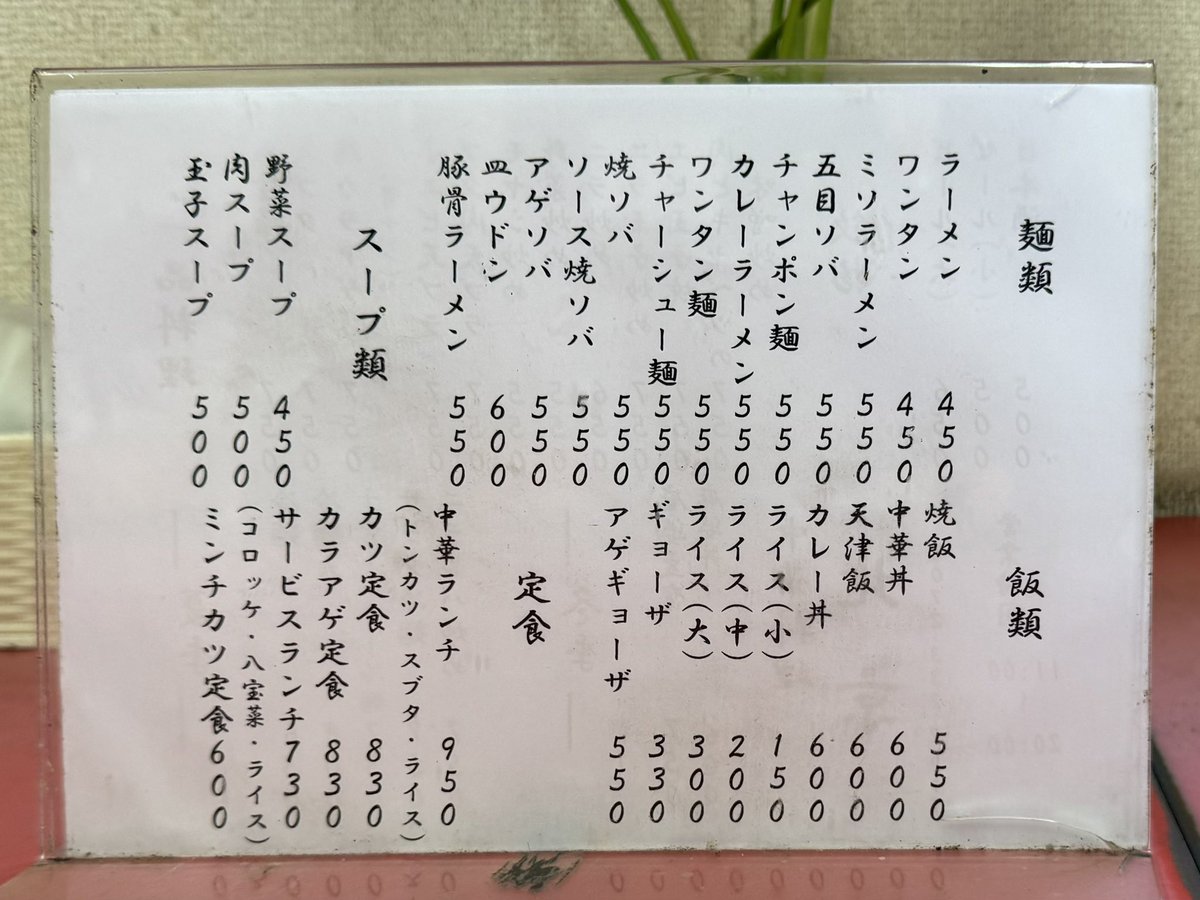 麺類
ラーメン 450
ワンタン 450
ミソラーメン 550
五目ソバ 550
チャンポン麺 550
カレーラーメン 550
ワンタン麺 550
チャーシュー麺 550
焼ソバ 550
ソース焼ソバ 550
アゲソバ 550
皿ウドン 600
豚骨ラーメン 550
スープ類
野菜スープ 450
肉スープ 500
玉子スープ 500
飯類
焼飯 550
中華丼 600
天津飯 600
カレー丼 600
ライス(小) 150
ライス(中) 200
ライス(大) 300
ギョーザ 330
アゲギョーザ 550
定食
中華ランチ 950
(トンカツ・スブタ・ライス)
カツ定食 830
カラアゲ定食 830
サービスランチ 730
(コロッケ・八宝菜・ライス)
ミンチカツ定食 600